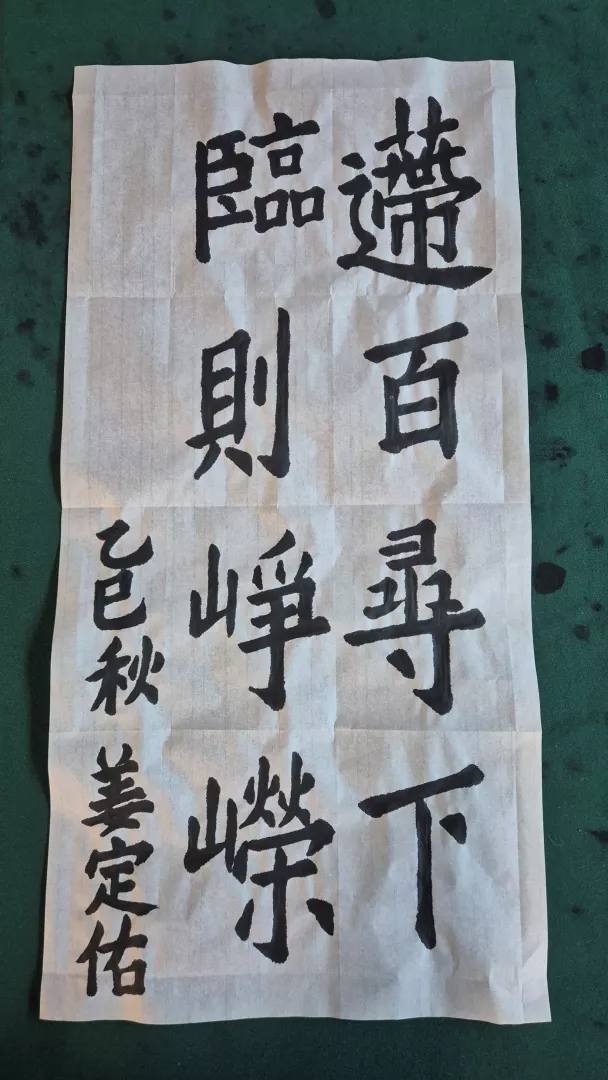 遰百尋下
臨則崢嶸
乙巳秋 姜定佑